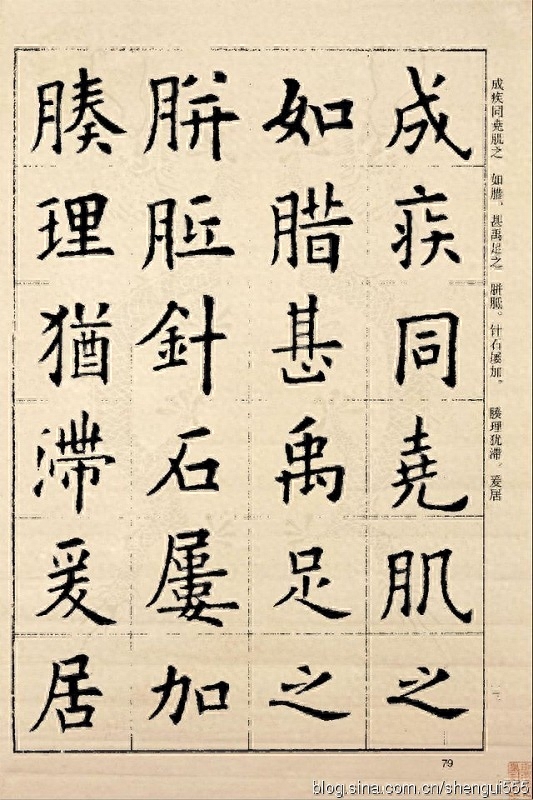 成疾同尧肌之　如腊。甚禹足之　胼胝。针石屡加。　腠理犹滞。爰居
成疾同堯肌之
如腊甚禹足之
胼胝針石屢加
腠理猶滯爰居
79
blog.sina.com.cn/shengui555